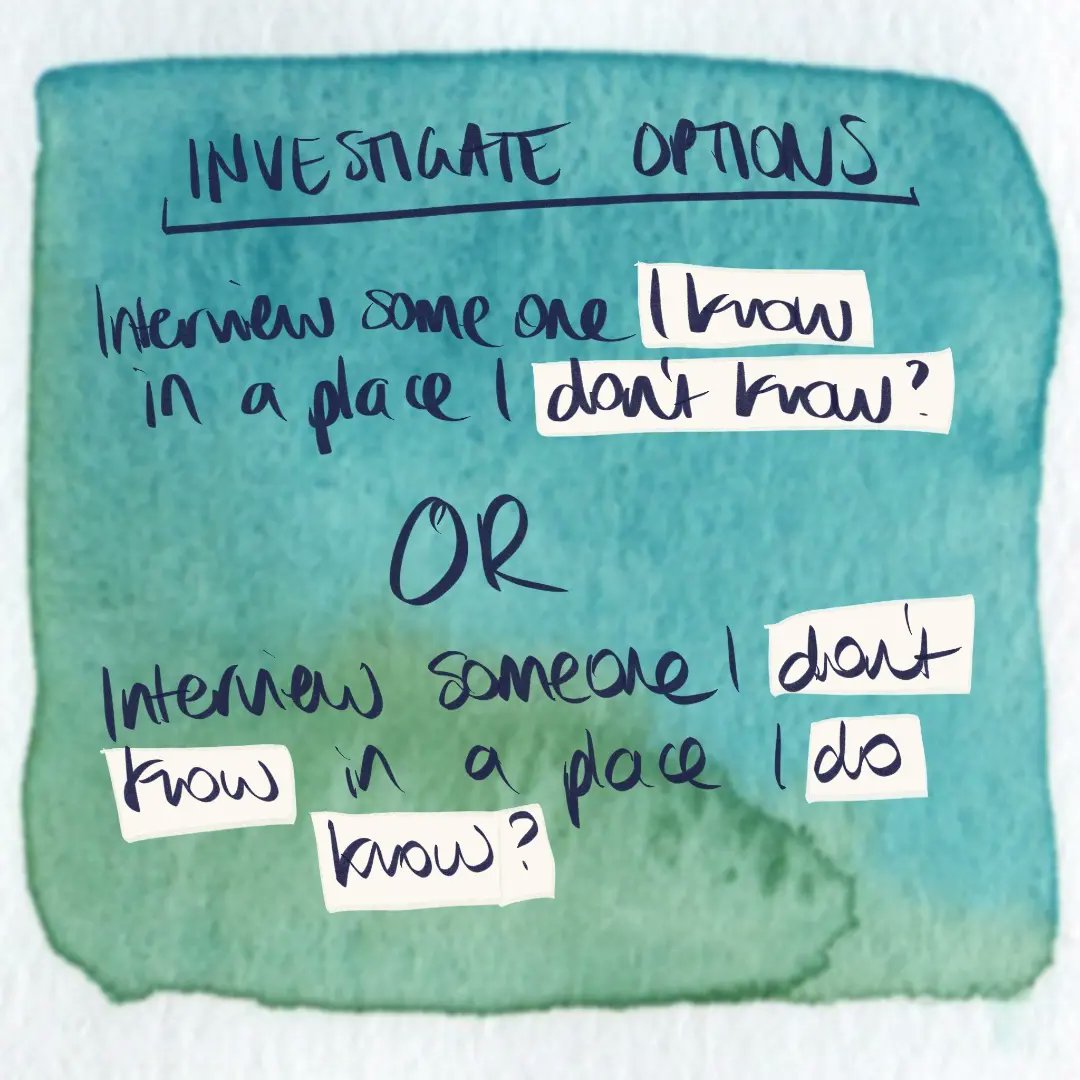 INVESTIGATE OPTIONS
Interview some one I know
in a place I don't know?
OR
Interview someone I don't
know in a place I do
know?